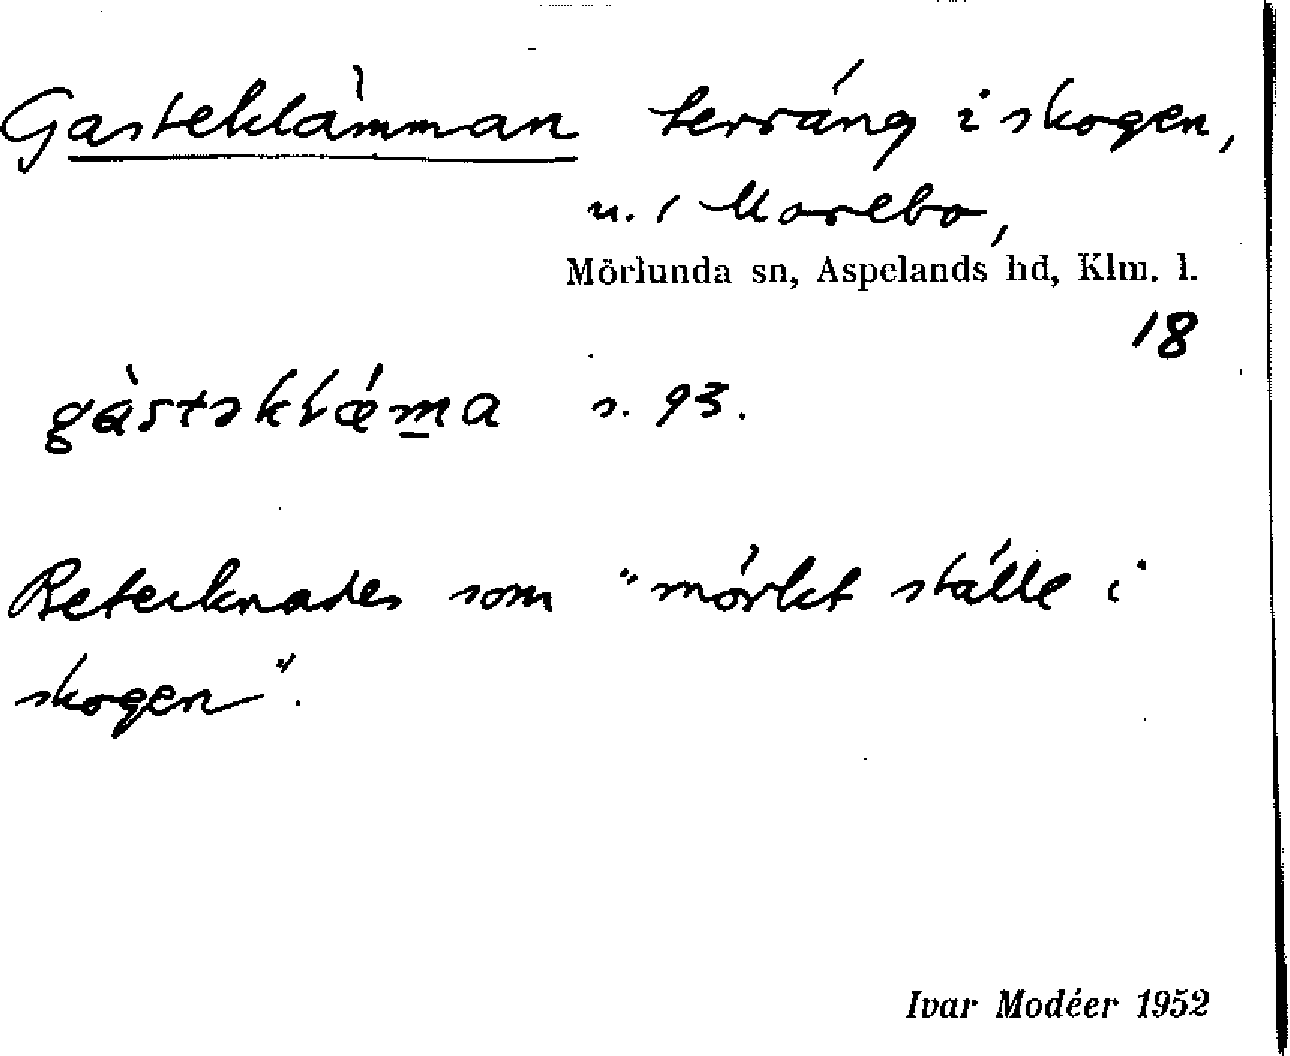 Gasteklämman terräng i skogen,
u. / Morebo,
Mörlunda sn, Aspelands hd, Klm. l.
18
gàstəklǽma s. 93.
Betecknades som "mörkt ställe i
skogen".
Ivar Modéer 1952